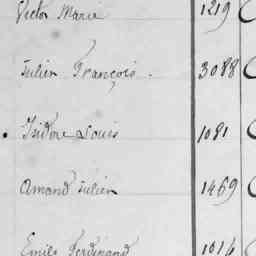 Victor Marie 1219
Julien François. 3088
Isidore Louis 1081
Amand Julien 1469
Emile Ferdinand 1016